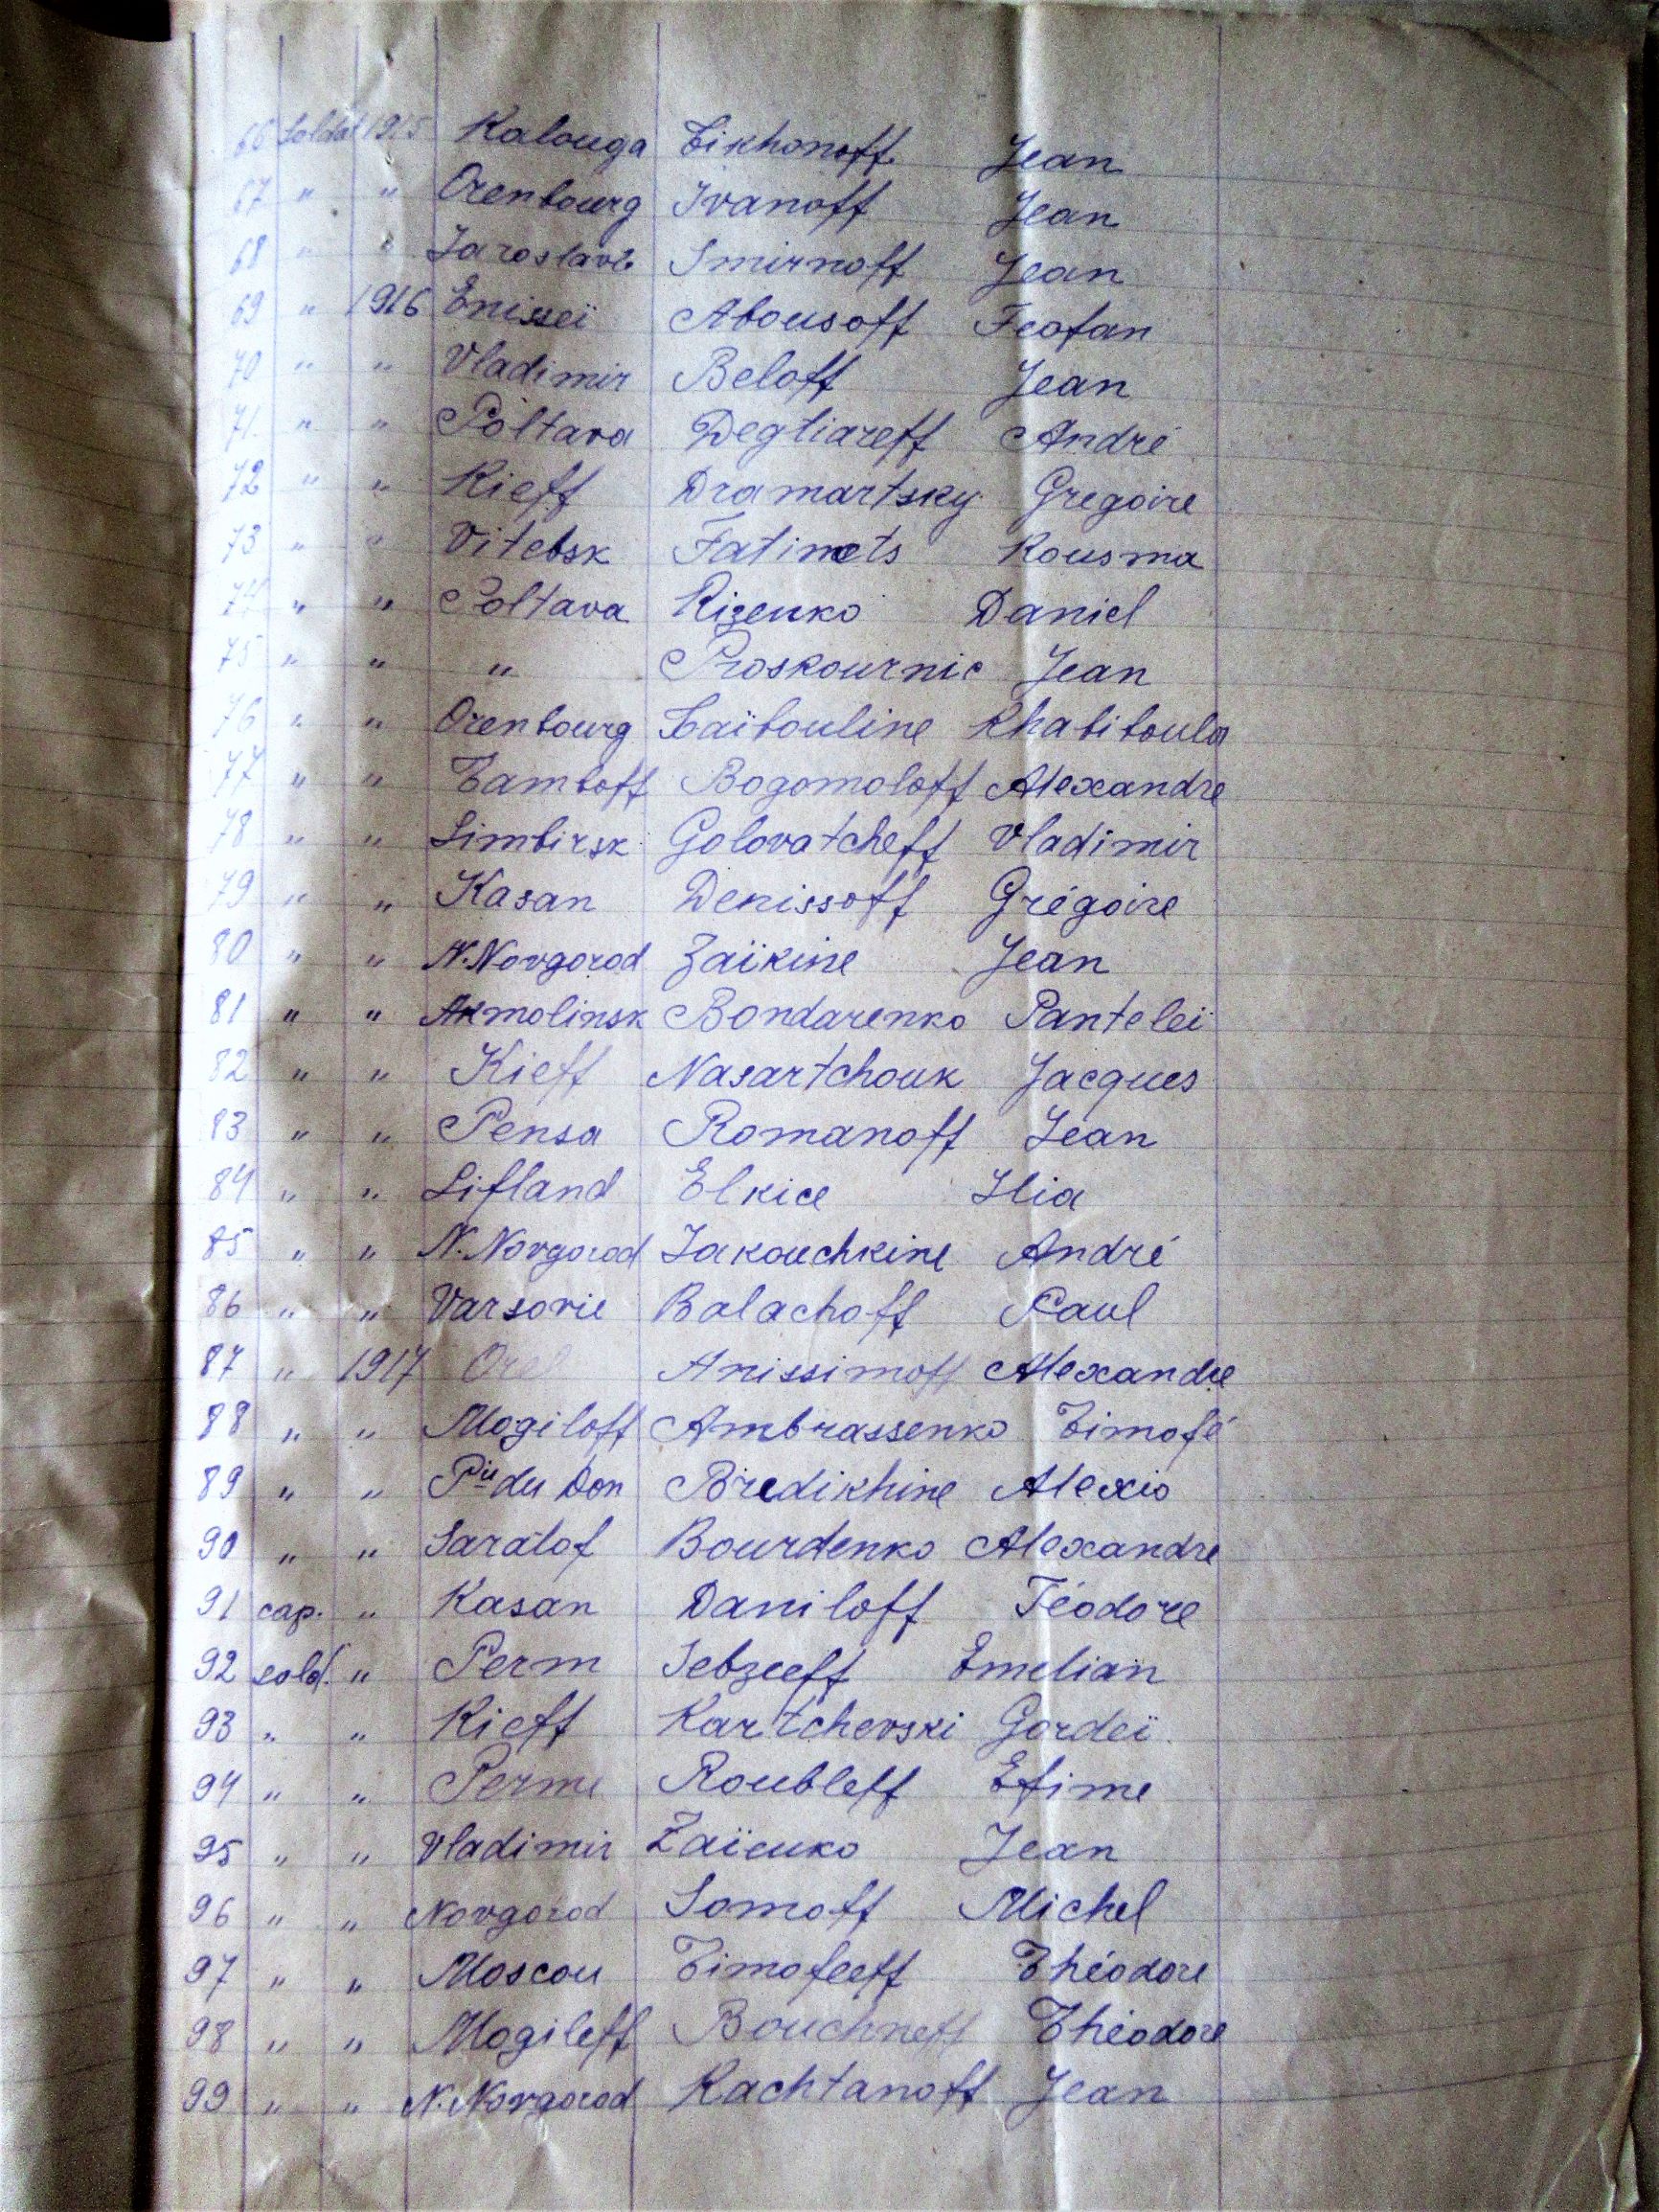 66 Soldat 1915 Kalouga Tikhonoff Jean
67 " " Orenbourg Ivanoff Jean
68 " " Jaroslavl Smirnoff Jean
69 " 1916 Enisseï Abousoff Feofan
70 " " Vladimir Beloff Jean
71. " " Poltava Degtiareff André
72 " " Kieff Dramartsky Gregoire
73 " " Vitebsk Fatimets Kousma
74 " " Poltava Rizenko Daniel
75 " " " Proskournic Jean
76 " " Orenbourg Saïbouline Khabiboula
77 " " Tamboff Bogomoloff Alexandre
78 " " Simbirsk Golovatcheff Vladimir
79 " " Kasan Denissoff Grégoire
80 " " N.Novgorod Zaïkine Jean
81 " " Akmolinsk Bondarenko Panteleï
82 " " Kieff Nasartchouk Jacques
83 " " Pensa Romanoff Jean
84 " " Lifland Elkice Ilia
85 " " N.Novgorod Jakouchkine André
86 " " Varsovie Balachoff Paul
87 " 1917 Orel Anissimoff Alexandre
88 " " Mogiloff Ambrassenko Timofé
89 " " Pie du Don Bredikhine Alexis
90 " " Saratof Bourdenko Alexandre
91 cap. " Kasan Daniloff Féodore
92 sold. " Perm Iebzeeff Emelian
93 " " Kieff Kartchevski Gordeï
94 " " Perme Roubleff Efime
95 " " Vladimir Zaïenko Jean
96 " " Novgorod Somoff Michel
97 " " Moscou Timofeeff Théodore
98 " " Mogileff Bouchneff Théodore
99 " " N.Novgorod Kachtanoff Jean